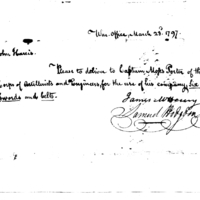 War-Office, March 23d 1797.
John Harris.
Please to deliver to Captain Moses Porter of the
Corps of Artillerists and Engineers, for the use of his company, Six
Swords and belts.
James McHenry
Samuel Hodgdon